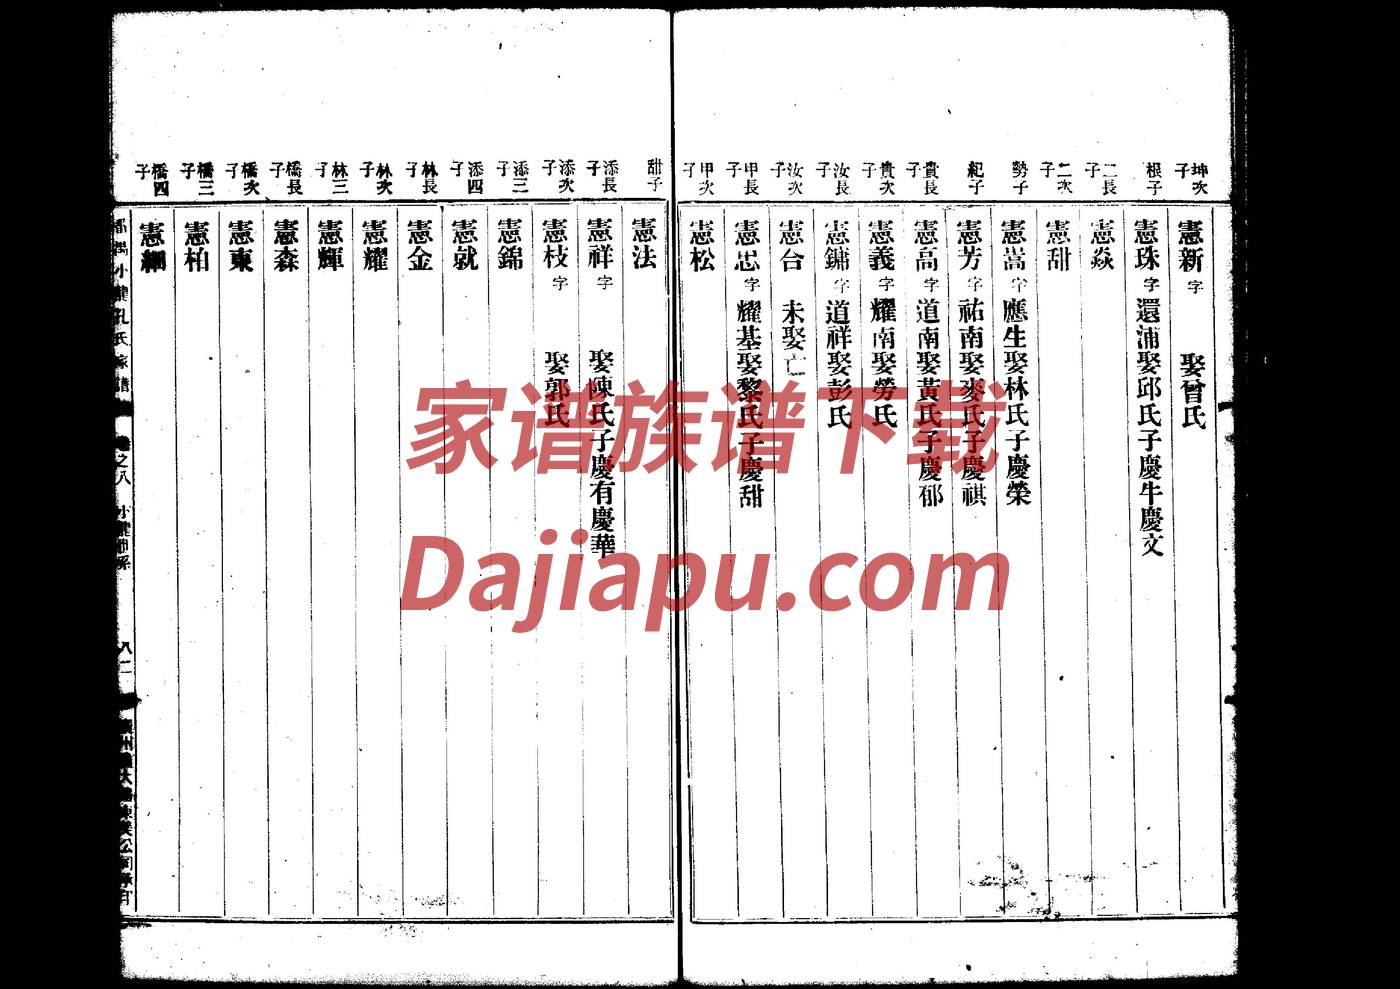 坤次子
憲新字 娶曾氏
根子
憲珠字還浦娶邱氏子慶牛慶文
二長子
憲焱
二次子
憲甜
勢子
憲嵩字應生娶林氏子慶榮
紀子
憲芳字祐南娶麥氏子慶祺
貴長子
憲高字道南娶黃氏子慶郁
貴次子
憲義字耀南娶勞氏
汝長子
憲鏞字道祥娶彭氏
汝次子
憲台 未娶亡
甲長子
憲忠字耀基娶黎氏子慶甜
甲次子
憲松
甜子
憲法
添長子
憲祥字 娶陳氏子慶有慶華
添次子
憲枝字 娶郭氏
添三子
憲錦
添四子
憲就
林長子
憲金
林次子
憲耀
林三子
憲輝
橋長子
憲森
橋次子
憲東
橋三子
憲柏
橋四子
憲
小 孔氏家譜 卷之八 小 八二
家谱族谱下载
Dajiapu.com